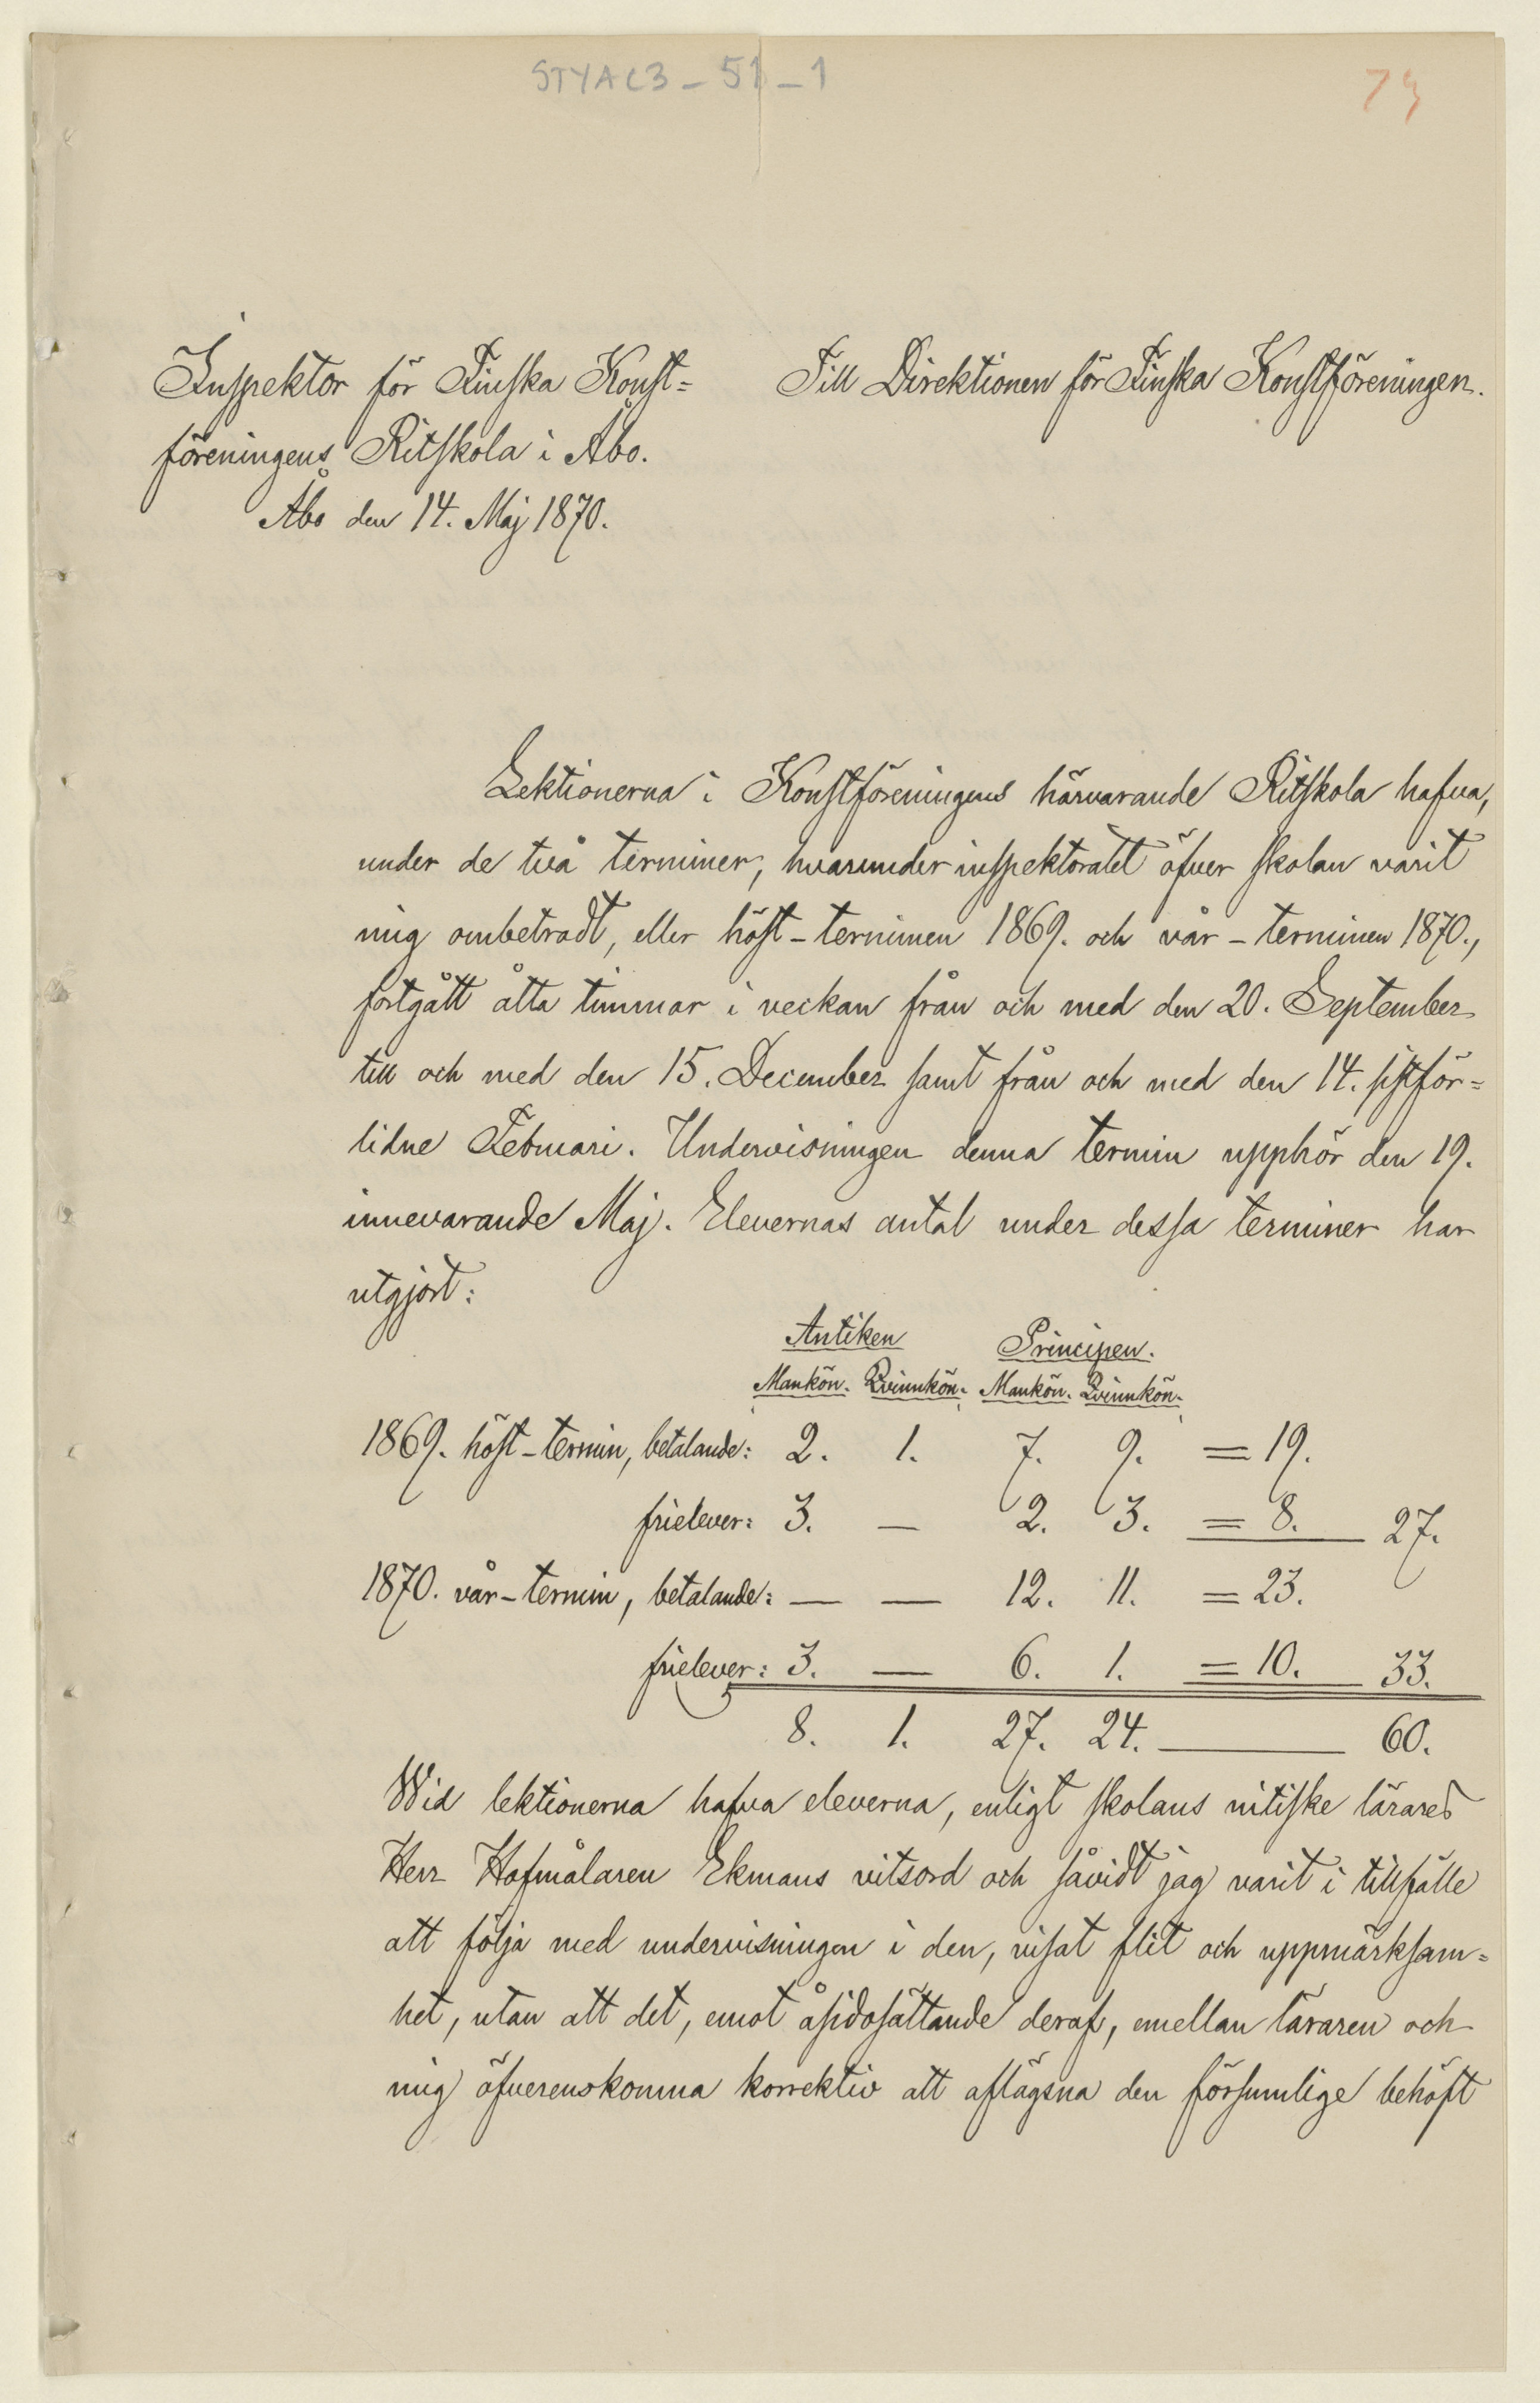 STYAC3-51-1
73
Inspektor för Finska Konst=
föreningens Ritskola i Åbo.
Åbo den 14. Maj 1870.
Till Direktionen för Finska Konstföreningen.
Lektionerna i Konstföreningens härvarande Ritskola hafva,
under de två terminer, hvarunder inspektoratet öfver skolan varit
mig ombetrodt, eller höst-terminen 1869. och vår-terminen 1870.,
fortgått åtta timmar i veckan från och med den 20. September
till och med den 15. December samt från och med den 14. sistför=
lidne Februari. Undervisningen denna termin upphör den 19.
innevarande Maj. Elevernas antal under dessa terminer har
utgjort:
Antiken Principen.
Mankön. Qvinnkön. Mankön. Qvinnkön.
1869. höst-termin, betalande: 2. 1. 7. 9. = 19.
frielever: 3. — 2. 3. = 8. 27.
1870. vår-termin, betalande: — — 12. 11. = 23.
frielever: 3. — 6. 1. = 10. 33.
8. 1. 27. 24. — 60.
Wid lektionerna hafva eleverna, enligt skolans nitiske lärares
Herr Hofmålaren Ekmans vitsord och såvidt jag varit i tillfälle
att följa med undervisningen i den, visat flit och uppmärksam=
het, utan att det, emot åsidosättande deraf, emellan läraren och
mig öfverenskomna korrektiv att aflägsna den försumlige behöft